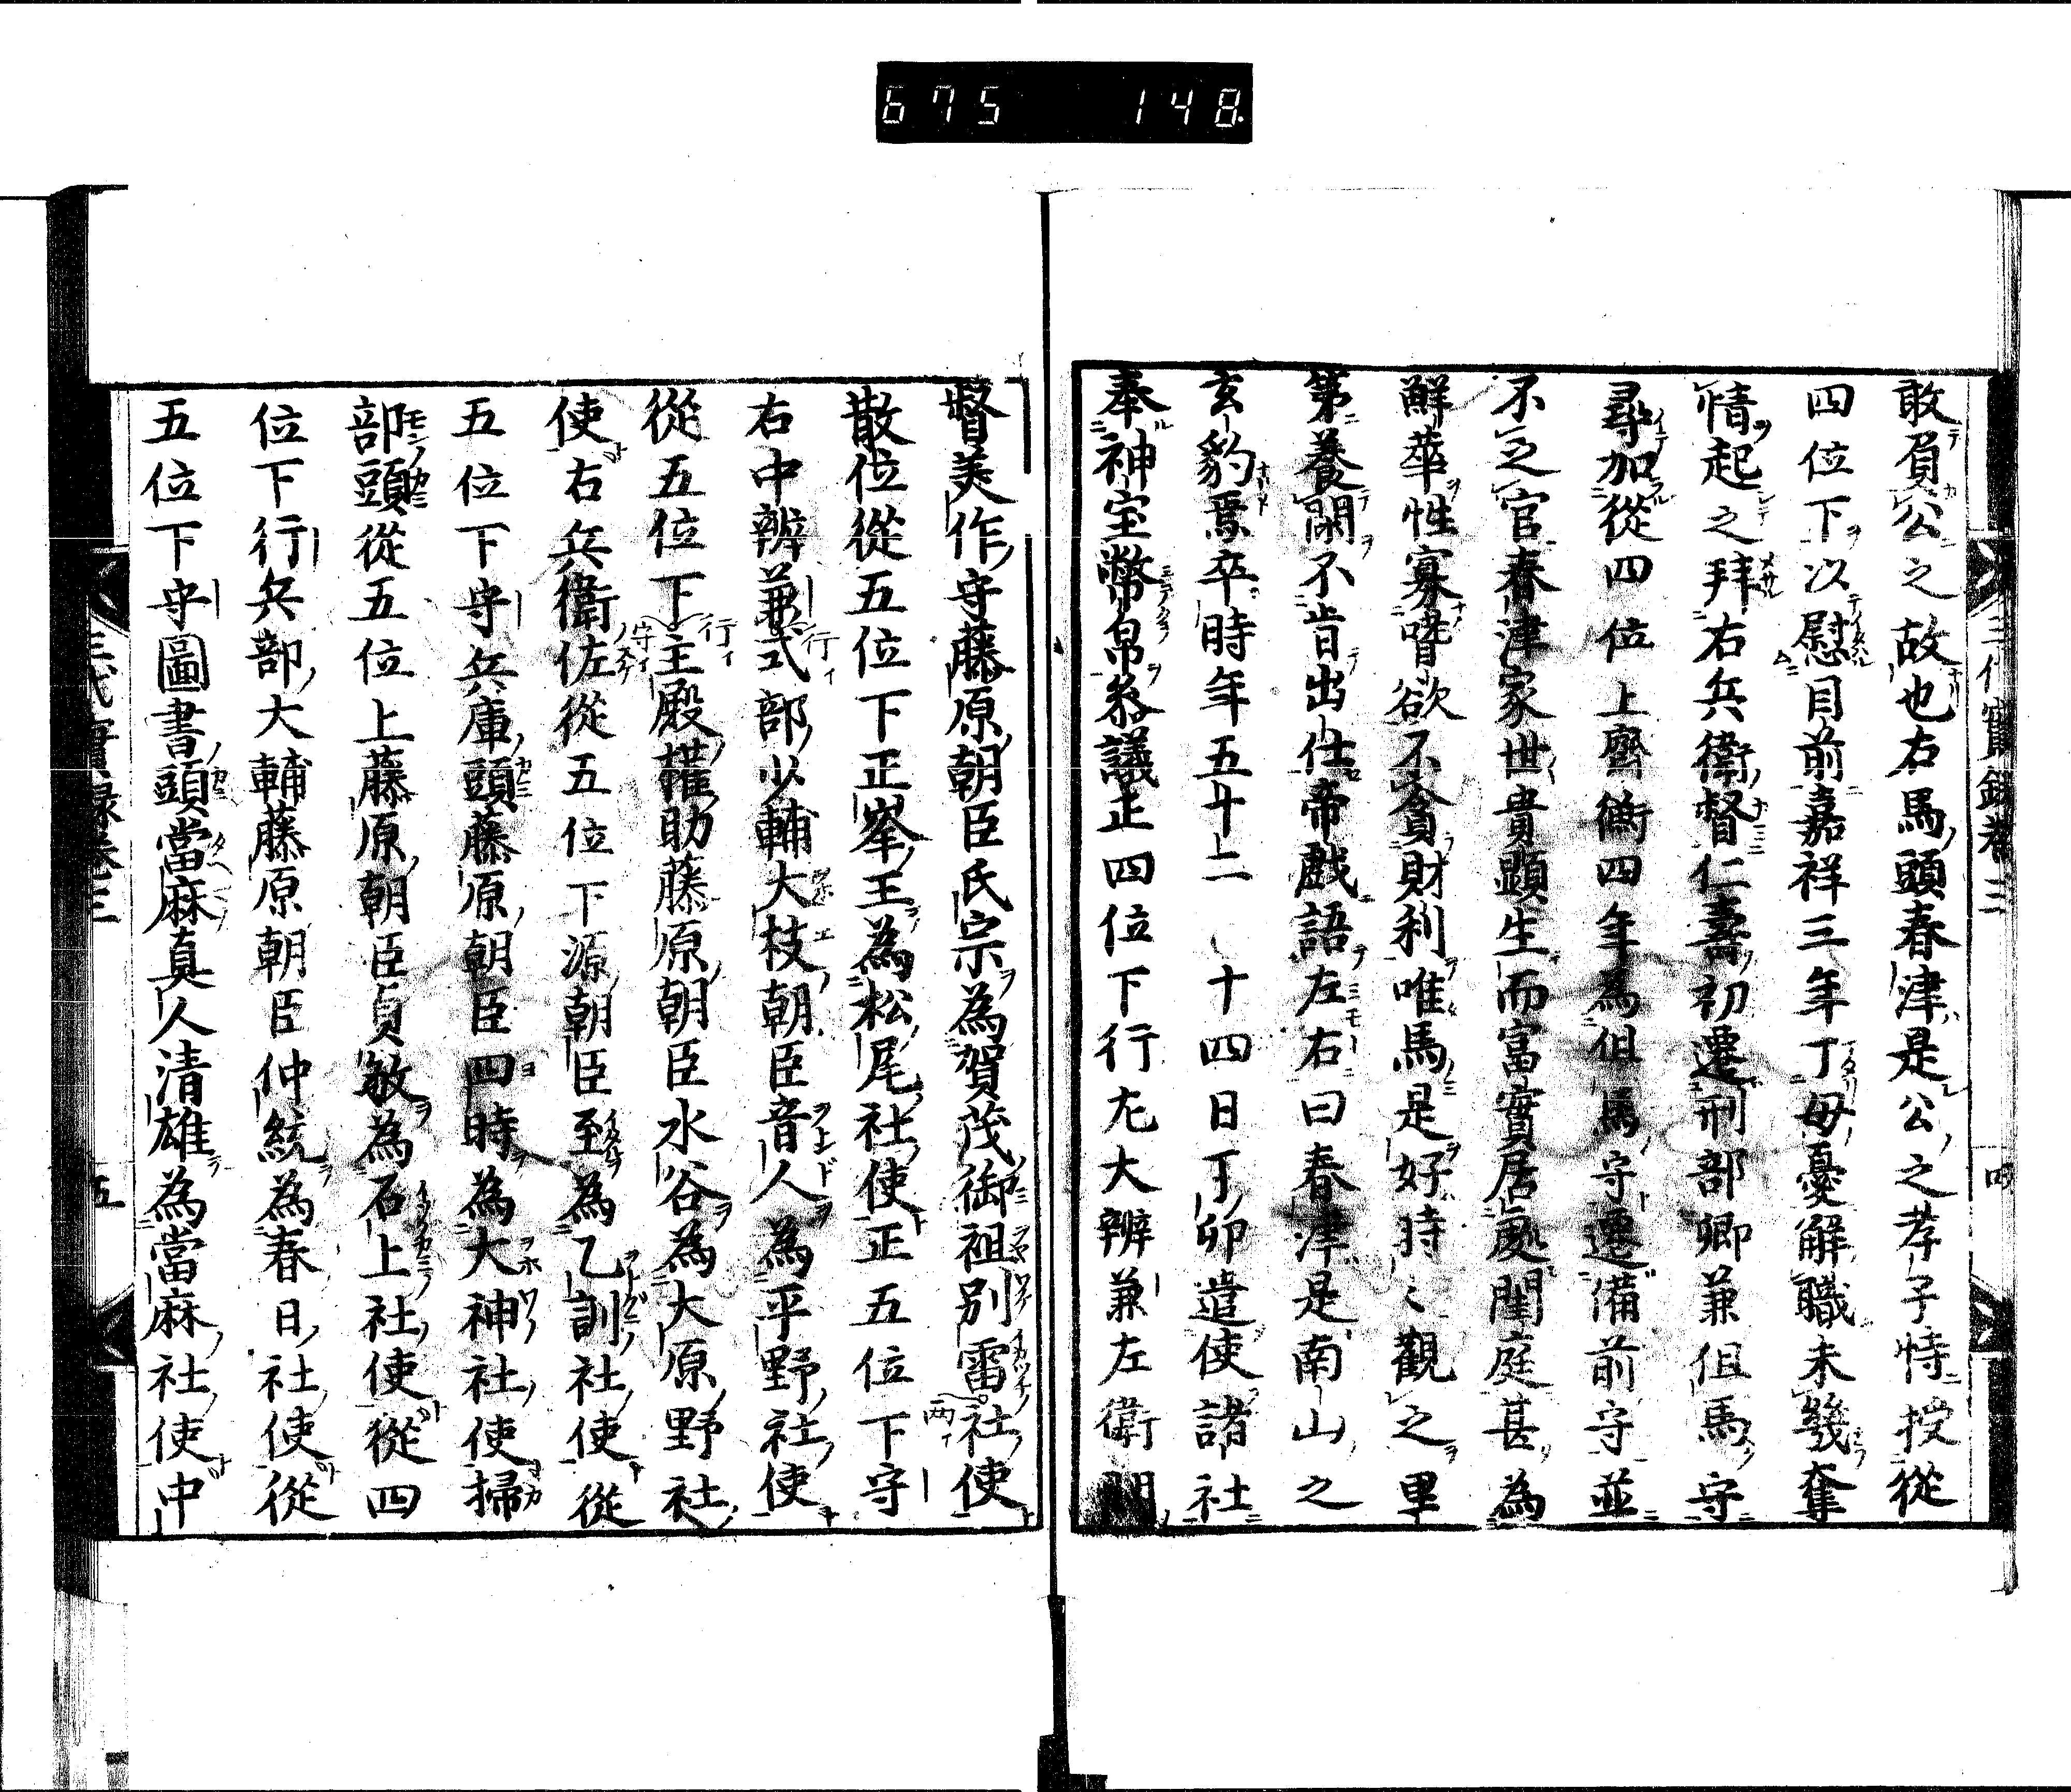 675 148
三代實録卷三 四
敢負公之故也右馬頭春津是公之孝子特授從
四位下以慰目前嘉祥三年丁母憂解職未幾奪
情起之拜右兵衛督仁壽初遷刑部卿兼但馬守
尋加從四位上齊衡四年為但馬守遷備前守並
不之官春津家世貴顕生而富實居處閨庭甚為
鮮華性寡嗜欲不貪財利唯馬是好時〻觀之畢
第養閑不肯出仕帝戯語左右曰春津是南山之
玄豹焉卒時年五十二 十四日丁卯遣使諸社
奉神宝幣帛叅議正四位下行尢大辨兼左衛門
督美作守藤原朝臣氏宗為賀茂御祖別雷社使
散位從五位下正峯王為松尾社使正五位下守
右中辨兼式部少輔大枝朝臣音人為平野社使
從五位下主殿權助藤原朝臣水谷為大原野社
使右兵衛佐從五位下源朝臣至為乙訓社使從
五位下守兵庫頭藤原朝臣四時為大神社使掃
部頭從五位上藤原朝臣貞敏為石上社使從四
位下行兵部大輔藤原朝臣仲統為春日社使從
五位下守圖書頭當麻真人清雄為當麻社使中
三代實録卷三 五